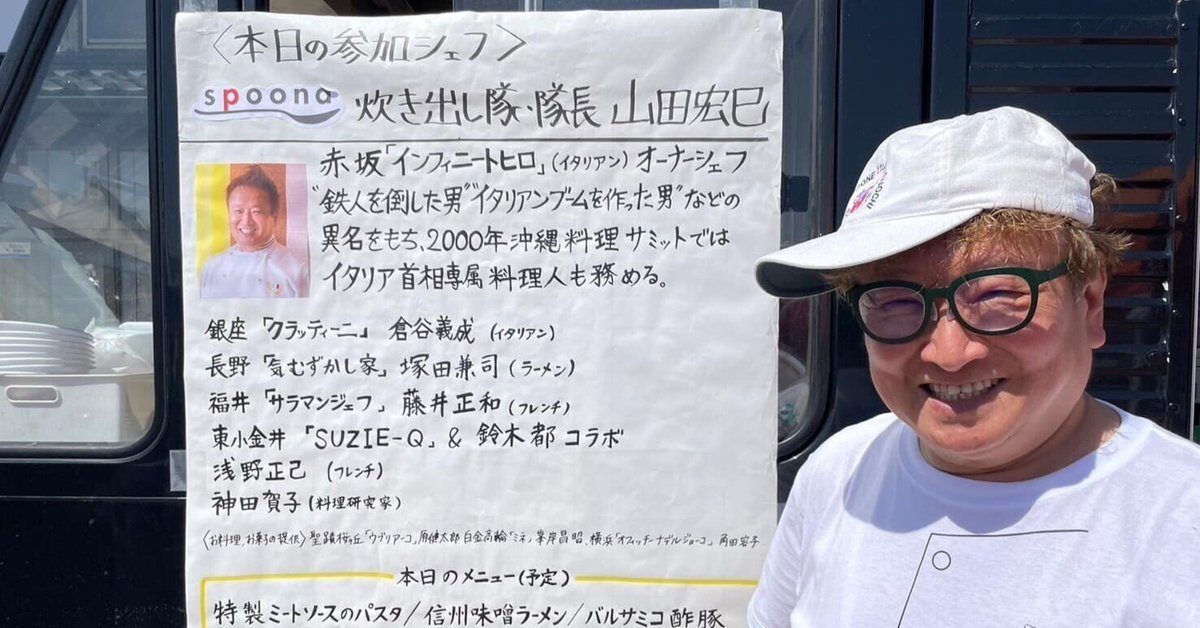 〈本日の参加シェフ〉
spoona 炊き出し隊・隊長 山田宏巳
赤坂「インフィニートヒロ」(イタリアン) オーナーシェフ
"鉄人を倒した男""イタリアンブームを作った男"などの
異名をもち、2000年沖縄料理サミットでは
イタリア首相専属料理人も務める。
銀座「クラッティーニ」 倉谷義成 (イタリアン)
長野「気むずかし家」塚田兼司 (ラーメン)
福井「サラマンジェフ」藤井正和 (フレンチ)
東小金井「SUZIE-Q」& 鈴木都 コラボ
浅野正己 (フレンチ)
神田賀子 (料理研究家)
〈お料理、お菓子の提供〉聖蹟桜ヶ丘「ウブリアーコ」原健太郎 白金高輪 峯岸昌昭、横浜「オフィッチーナデルジョーコ」
本日のメニュー(予定)
特製ミートソースのパスタ/信州味噌ラーメン/バルサミコ酢豚